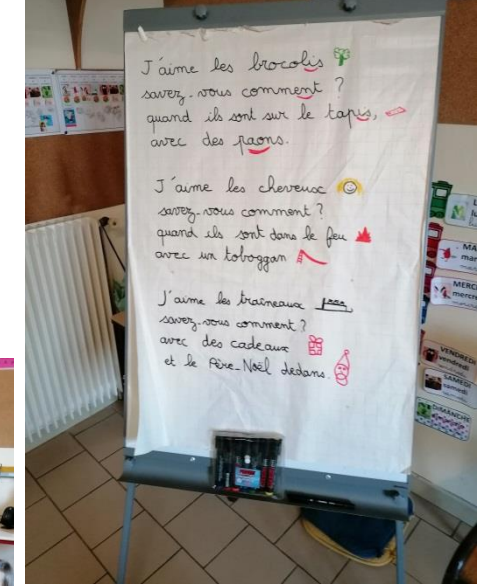 J'aime les brocolis
savez-vous comment ?
quand ils sont sur le tapis,
avec des paons.
J'aime les cheveux
savez-vous comment ?
quand ils sont dans le feu
avec un toboggan
J'aime les traîneaux
savez-vous comment ?
avec des cadeaux
et le Père-Noël dedans.
MERCREDI
mercredi
VENDREDI
vendredi
SAMEDI
samedi
DIMANCHE